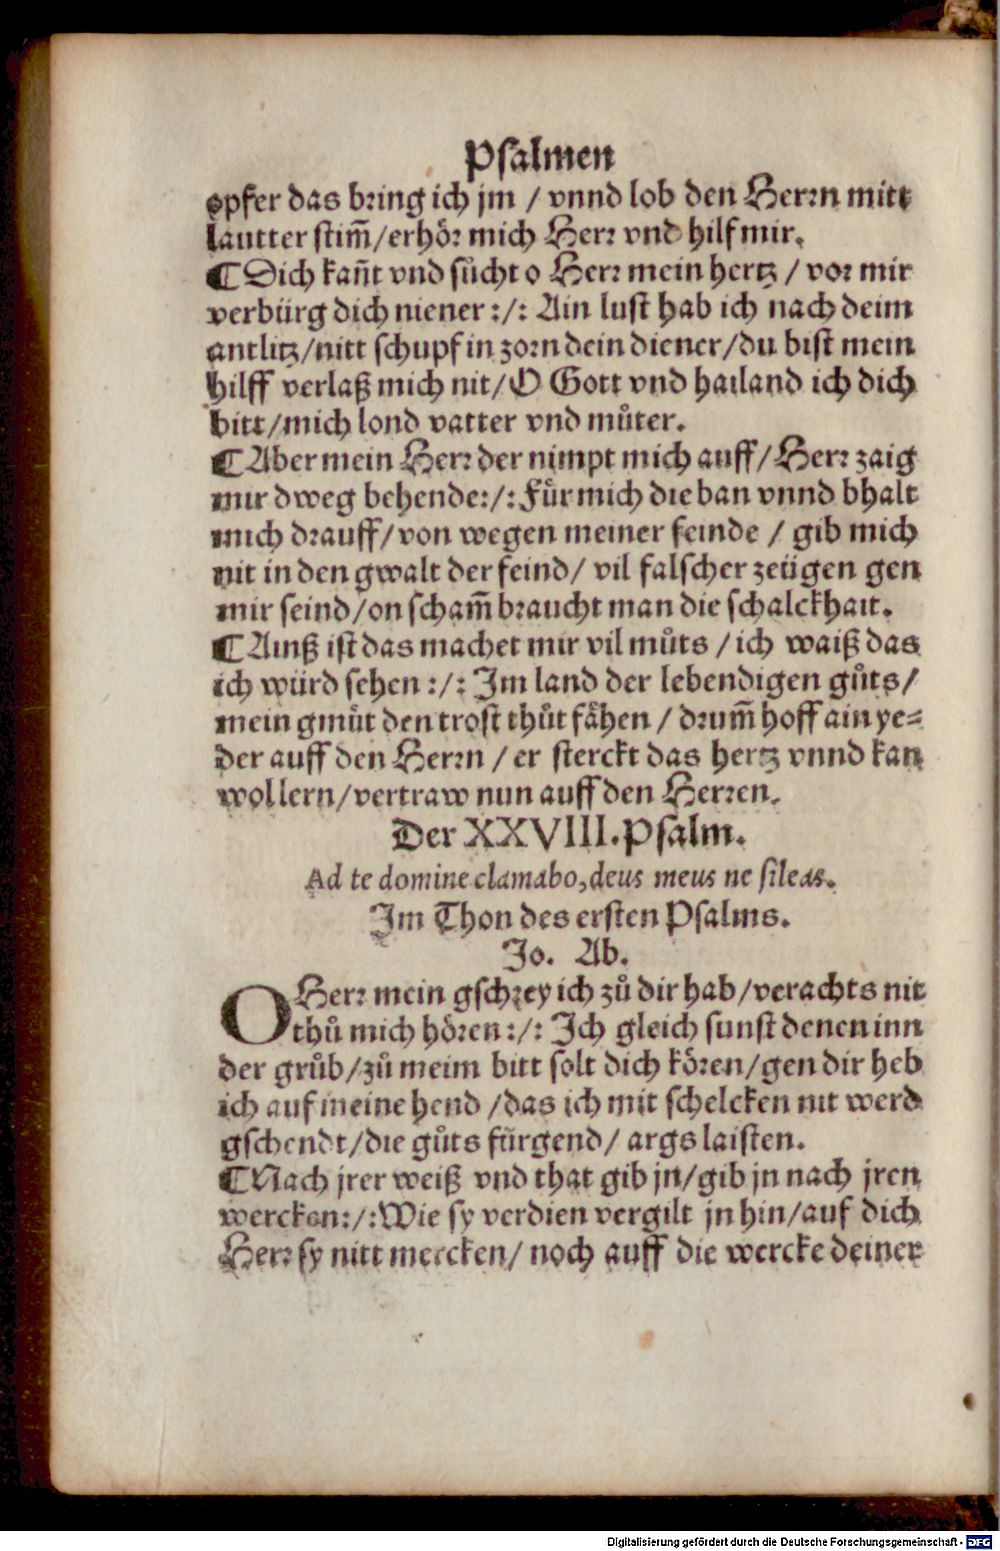 Psalmen
opfer das bring ich jm / vnnd lob den Herrn mitt
lautter stim̃/erhoͤr mich Herr vnd hilf mir.
¶ Dich kañt vnd suͦcht o Herr mein hertz / vor mir
verbürg dich niener :/: Ain lust hab ich nach deim
antlitz/nitt schupf in zorn dein diener/du bist mein
hilff verlaß mich nit/O Gott vnd hailand ich dich
bitt/mich lond vatter vnd muͦter.
¶ Aber mein Herr der nimpt mich auff/Herr zaig
mir dweg behende:/: Fuͤr mich die ban vnnd bhalt
mich drauff/von wegen meiner feinde / gib mich
nit in den gwalt der feind/ vil falscher zeügen gen
mir seind/on scham̃ braucht man die schalckhait.
¶ Ainß ist das machet mir vil muͦts / ich waiß das
ich würd sehen :/: Im land der lebendigen guͦts/
mein gmuͤt den trost thuͦt faͤhen / drum̃ hoff ain ye⸗
der auff den Herrn / er sterckt das hertz vnnd kan
wol lern/vertraw nun auff den Herren.
Der XXVIII. Psalm.
Ad te domine clamabo, deus meus ne sileas.
Im Thon des ersten Psalms.
Jo. Ab.
O Herr mein gschrey ich zuͦ dir hab/verachts nit
thuͦ mich hoͤren :/: Ich gleich sunst denen inn
der gruͦb/zuͦ meim bitt solt dich koͤren/gen dir heb
ich auf meine hend /das ich mit schelcken nit werd
gschendt/die guͦts fürgend/ args laisten.
¶ Nach jrer weiß vnd that gib jn/gib jn nach jren
wercken:/: Wie sy verdien vergilt jn hin/auf dich
Herr sy nitt mercken/ noch auff die wercke deiner
Digitalisierung gefördert durch die Deutsche Forschungsgemeinschaft - DFG